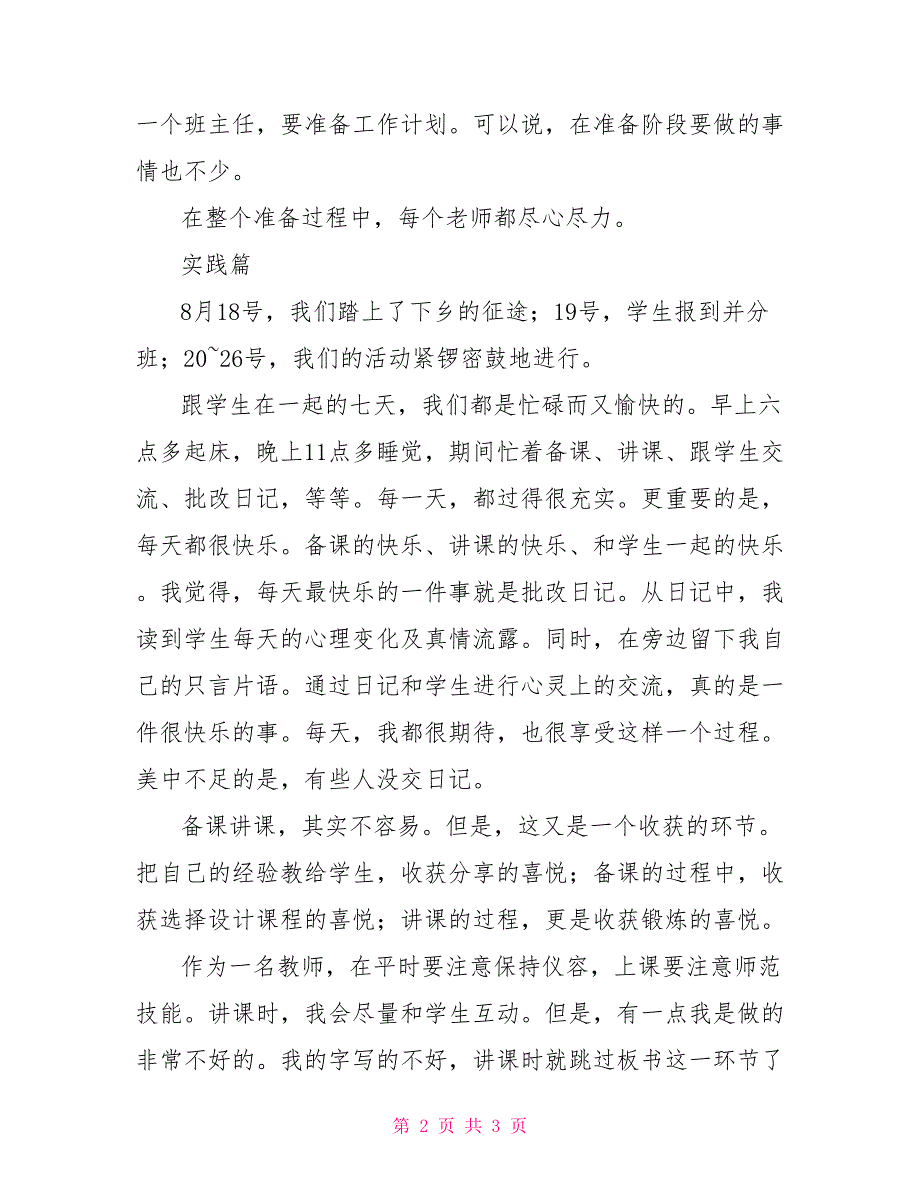 一个班主任，要准备工作计划。可以说，在准备阶段要做的事
情也不少。
在整个准备过程中，每个老师都尽心尽力。
实践篇
8月18号，我们踏上了下乡的征途；19号，学生报到并分
班；20~26号，我们的活动紧锣密鼓地进行。
跟学生在一起的七天，我们都是忙碌而又愉快的。早上六
点多起床，晚上11点多睡觉，期间忙着备课、讲课、跟学生交
流、批改日记，等等。每一天，都过得很充实。更重要的是，
每天都很快乐。备课的快乐、讲课的快乐、和学生一起的快乐
。我觉得，每天最快乐的一件事就是批改日记。从日记中，我
读到学生每天的心理变化及真情流露。同时，在旁边留下我自
己的只言片语。通过日记和学生进行心灵上的交流，真的是一
件很快乐的事。每天，我都很期待，也很享受这样一个过程。
美中不足的是，有些人没交日记。
备课讲课，其实不容易。但是，这又是一个收获的环节。
把自己的经验教给学生，收获分享的喜悦；备课的过程中，收
获选择设计课程的喜悦；讲课的过程，更是收获锻炼的喜悦。
作为一名教师，在平时要注意保持仪容，上课要注意师范
技能。讲课时，我会尽量和学生互动。但是，有一点我是做的
非常不好的。我的字写的不好，讲课时就跳过板书这一环节了
第 2 页 共 3 页